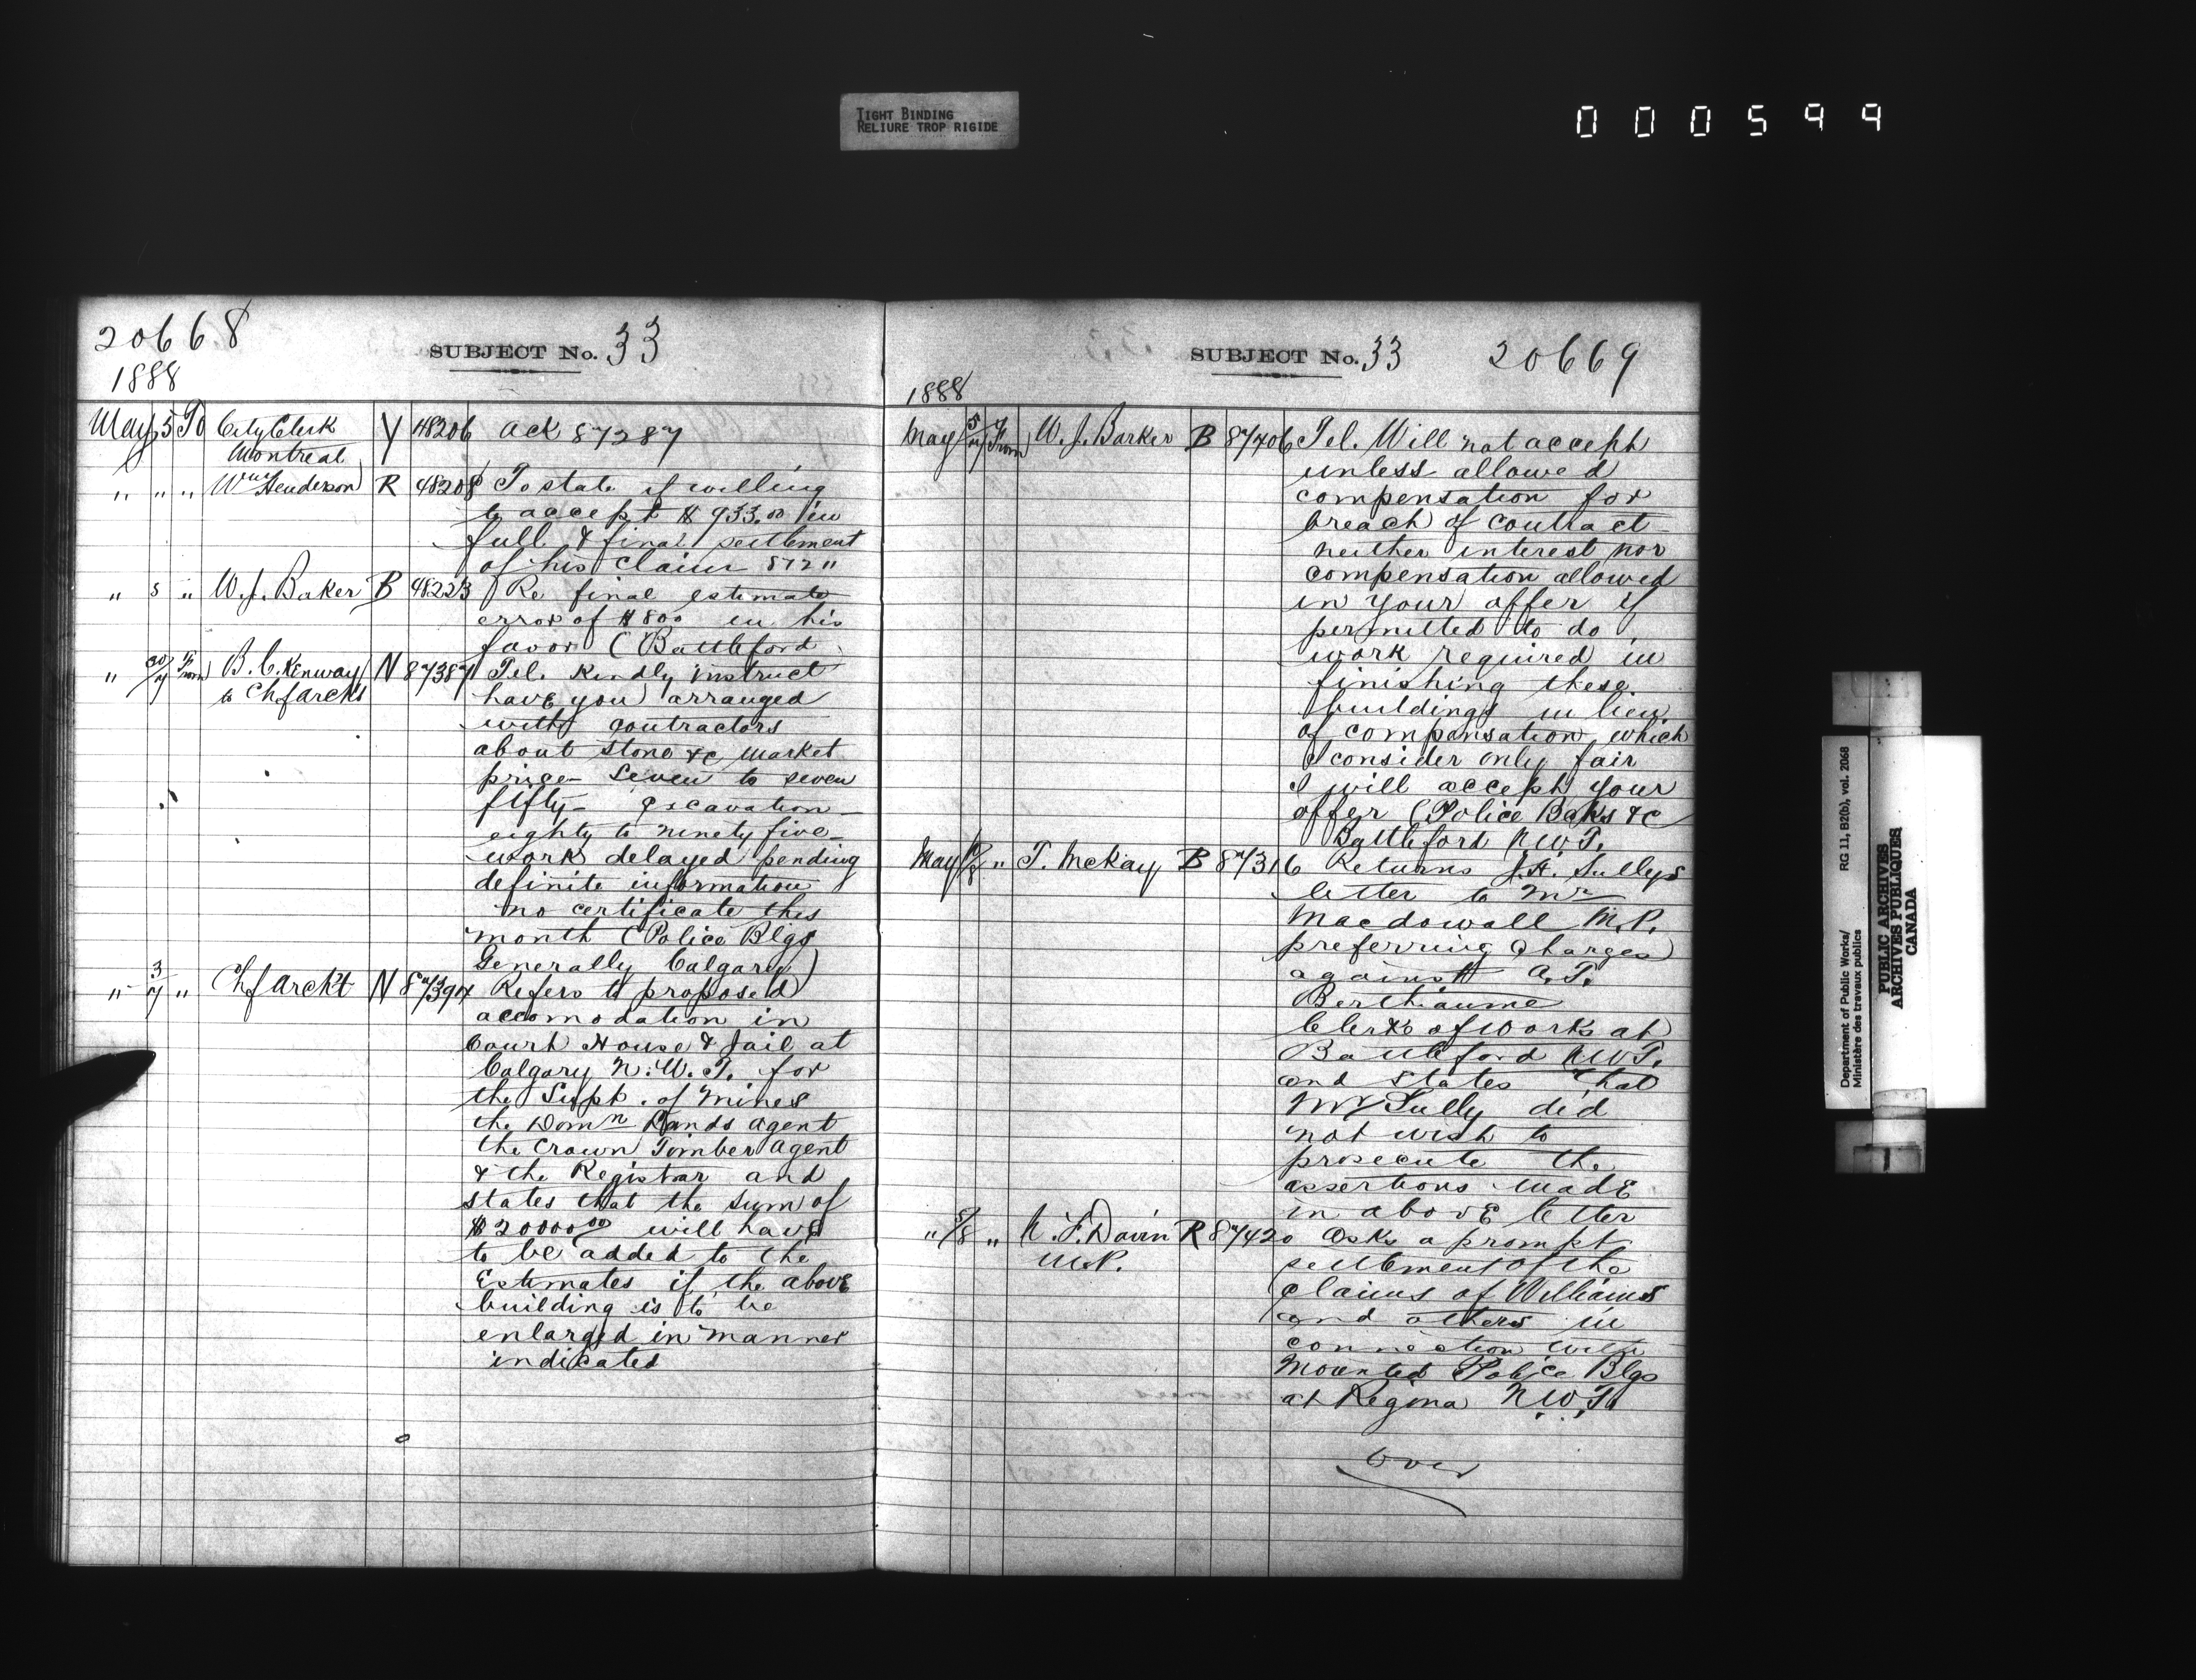 TIGHT BINDING
RELIURE TROP RIGIDE
000599
20668
SUBJECT No. 33
1888
May 5 To City Clerk Y 48206 Ack 87287
Montreal
" " " Wm Henderson R 48208 To state if willing
to accept $933.00 in
full & final settlement
of his claim 872"
" 5 " W. J. Baker B 48223 Re final estimate
error of $800 in his
favor (Battleford
" 30/7 From B. C. Kenway N 87387 Tel. Kindly instruct
to Chf archt have you arranged
with contractors
about stone &c market
price - Seven to seven
fifty - excavation -
eighty to ninety five -
work delayed pending
definite information
no certificate this
month (Police Blgs
Generally Calgary)
" 3/7 " Chf Archt N 87394 Refers to proposed
accomodation in
Court House & Jail at
Calgary N. W. T. for
the Supt. of Mines
the Domn Lands agent
the Crown Timber agent
& the Registrar and
states that the sum of
$20000.00 will have
to be added to the
Estimates if the above
building is to be
enlarged in manner
indicated
SUBJECT No. 33 20669
1888
May 5/7 From W. J. Barker B 87406 Tel. Will not accept
unless allowed
compensation for
breach of contract
neither interest nor
compensation allowed
in your offer if
permitted to do
work required in
finishing these
buildings in lieu
of compensation which
I consider only fair
I will accept your
offer (Police Baks &c
Battleford N.W.T.
May " T. McKay B 87316 Returns J. H. Sullys
letter to Mr
Macdowall M.P.
preferring charges
against A. T.
Berthiaume
Clerk of Works at
Battleford N.W.T.
and states that
Mr Sully did
not wish to
prosecute the
assertions made
in above letter
" 5/8 " N. F. Davin R 87420 Asks a prompt
M.P. settlement of the
claims of Williams
and others in
connection with
Mounted Police Blgs
at Regina N.W.T.
Over
Department of Public Works/
Ministère des travaux publics
RG 11, B2(b), vol. 2068
PUBLIC ARCHIVES
ARCHIVES PUBLIQUES
CANADA